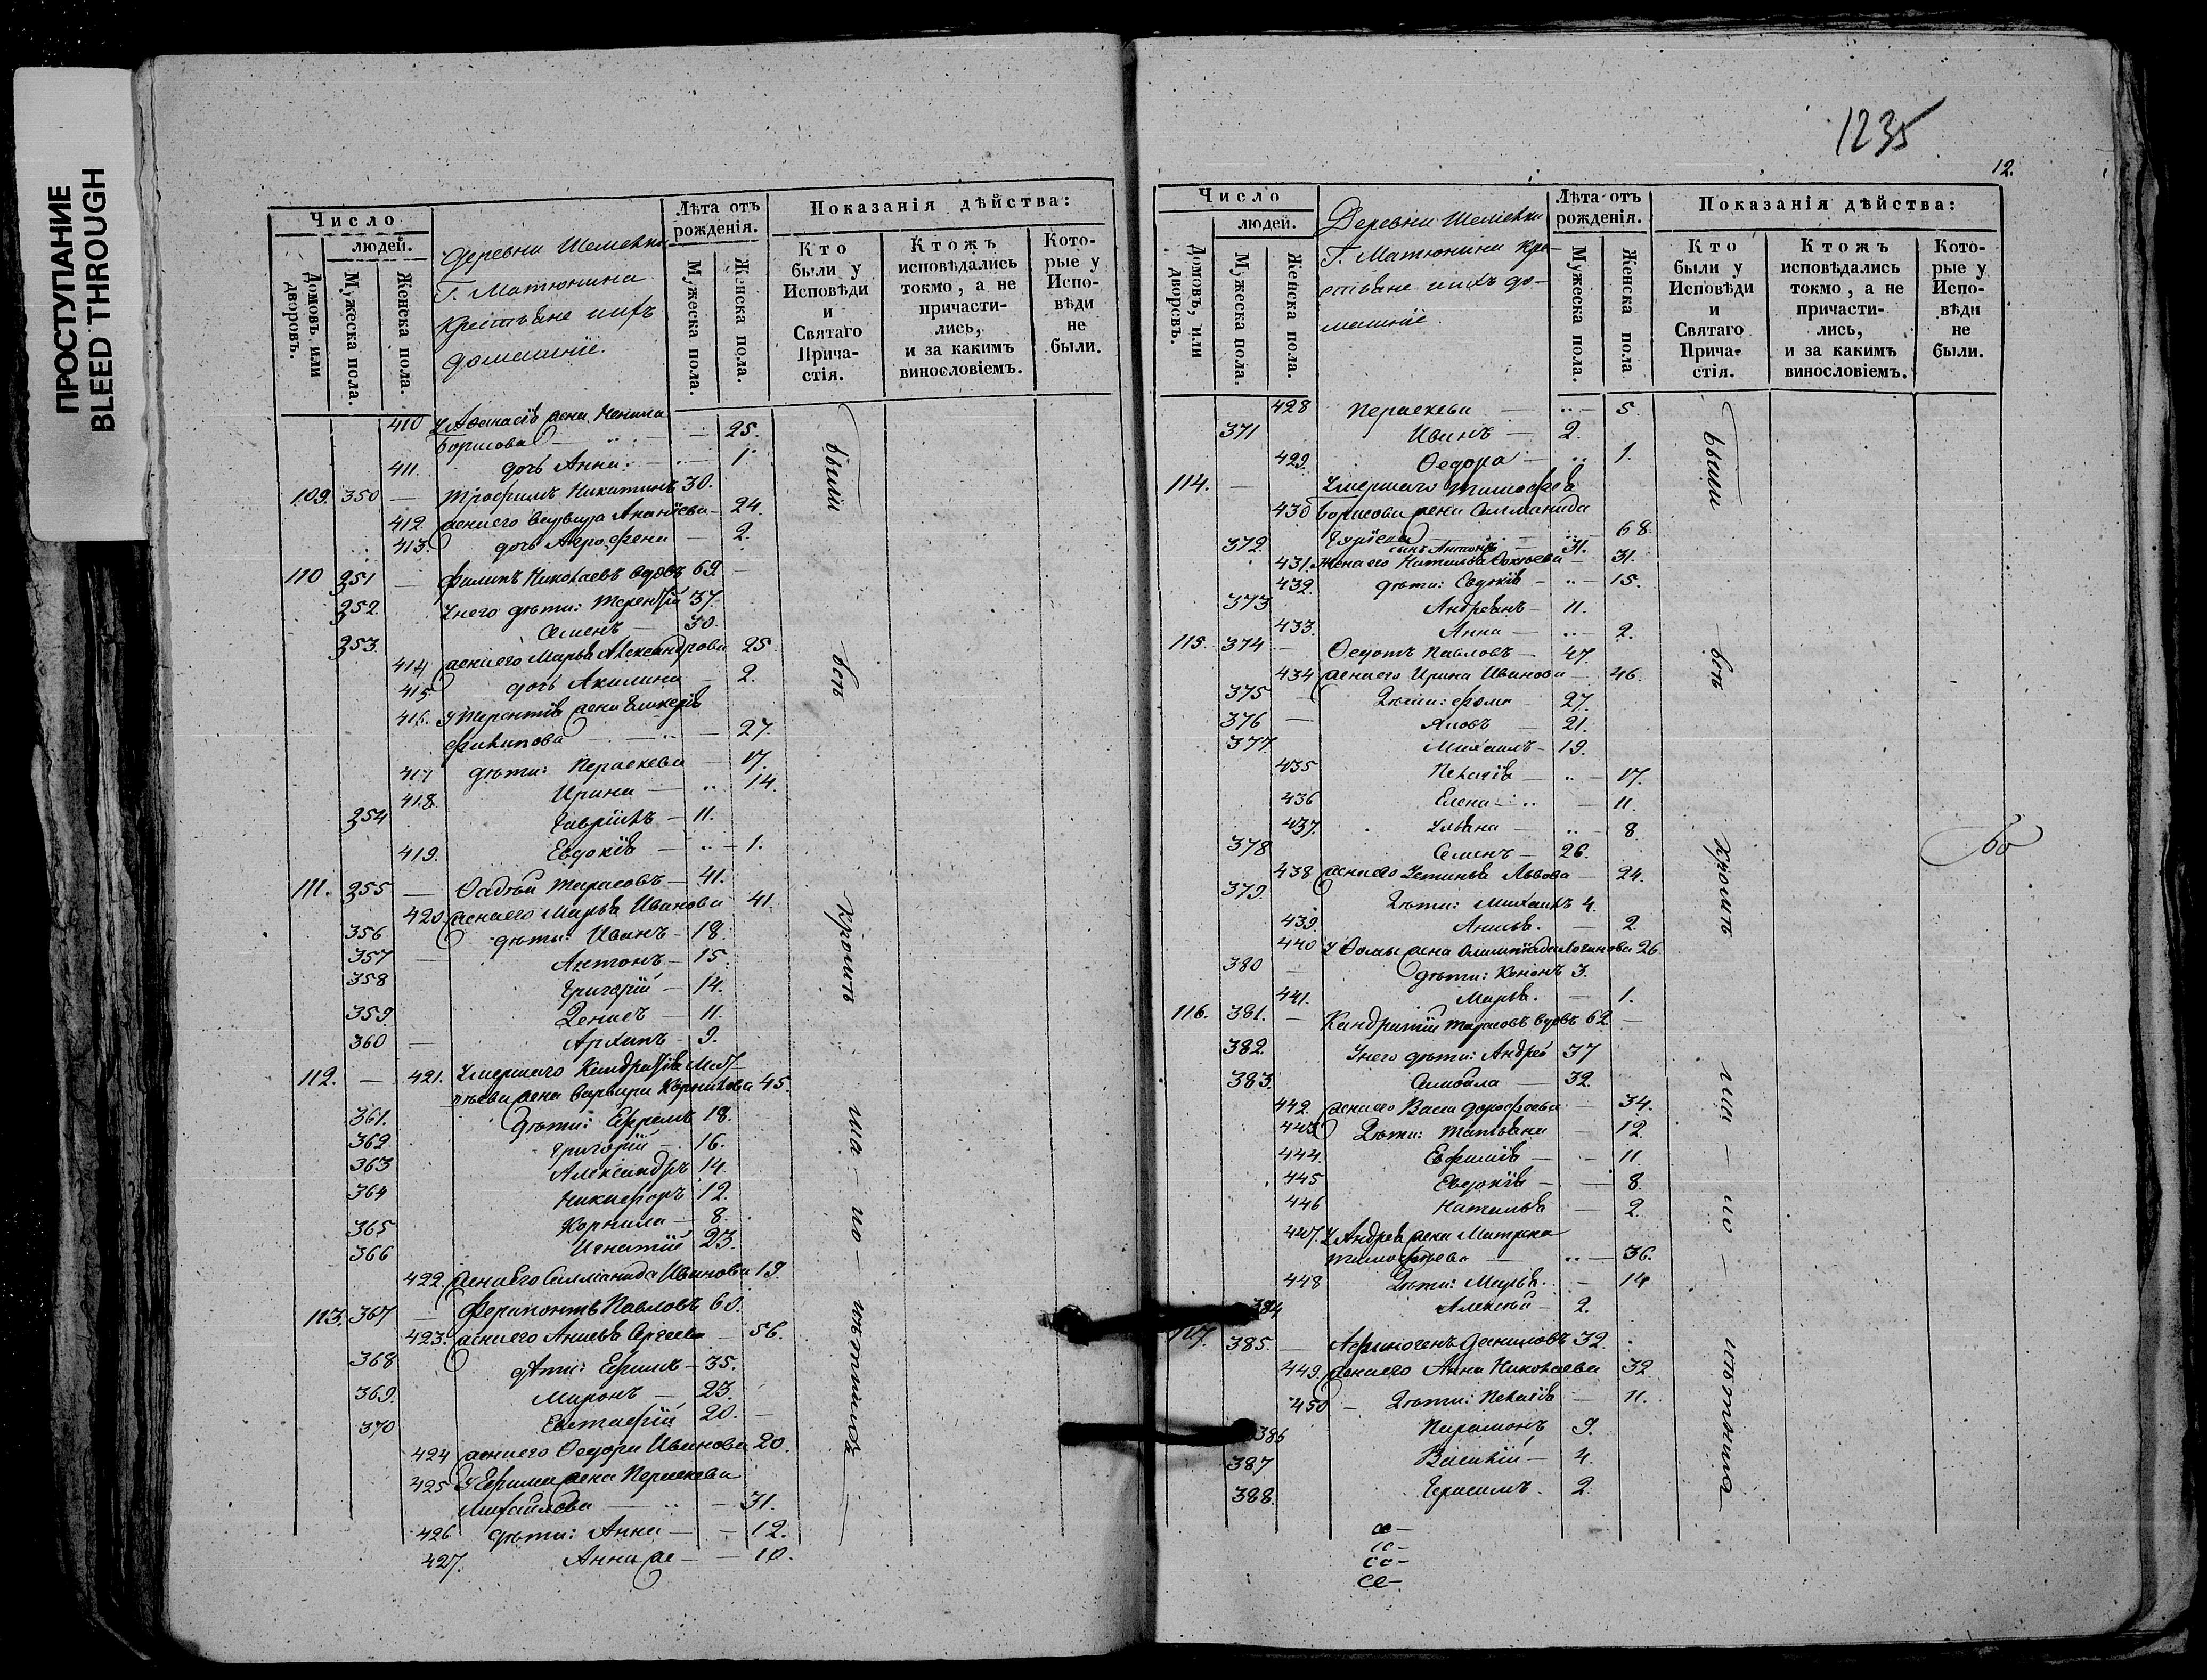 ПРОСТУПАНИЕ
BLEED THROUGH
Число
людей.
Домовъ, или дворовъ.
Мужеска пола.
Женска пола.
Деревни
Г. Матюнина
Крестьяне ихъ
домашніе.
Лѣта отъ рожденія.
Мужеска пола.
Женска пола.
Показанія дѣйства:
Кто были у Исповѣди и Святаго Прича-стія.
Ктожъ исповѣдались токмо, а не причасти-лись, и за какимъ винословіемъ.
Кото-рые у Испо-вѣди не были.
410 У Афанасія жена Ненила
Борисова — 25.
411. дочь Анна — 1
109. 350 — Трофимъ Никитинъ 30.
412. жена его Ананіева — 24.
413. дочь Агрофена — 2.
110 251 — Филипъ Николаевъ вдовъ 69.
252. У него дѣти: Терентій 37.
253. Семенъ — 30.
414 жена его Марья Александрова 25.
415 дочь Акилина — 2.
416. У Терентія жена Гликерія
Филипова — 27.
417 дѣти: Параскева — 17.
418. Ирина — 14.
254 Гавріилъ — 11.
419. Евдокія — 1.
111. 255 — Фадѣй Тарасовъ — 41.
420. жена его Марья Иванова 41.
356 дѣти: Иванъ — 18.
357 — Антонъ — 15.
358 Григорій — 14.
359. Денисъ — 11.
360 — Архипъ — 9.
112. — 421. Умершаго Кандратія Мат-
вѣева жена Варвара Корнилова 45.
361. Дѣти: Ефремъ 18.
362 Григорій — 16.
363 Александръ 14.
364 Никифоръ 12.
365 Корнила — 8.
366 Игнатій 23.
422. жена его Саламанида Иванова 19.
113. 367 — Ферапонтъ Павловъ 60.
423. жена его Анисья Сергеева — 56.
368 дѣти: Ефимъ — 35.
369. Миронъ — 23.
370 Евстафій 20. —
424 жена его Федора Иванова 20.
425 У Ефима жена Параскева
Михайлова — 31.
426 дѣти: Анна — 12.
427. Анна же — 10.
были
всѣ
кромѣ
ма-ло-лѣтнихъ
1235
12.
Число
людей.
Домовъ, или дворовъ.
Мужеска пола.
Женска пола.
Деревни
Г. Матюнина Кре-
стьяне ихъ до-
машніе.
Лѣта отъ рожденія.
Мужеска пола.
Женска пола
Показанія дѣйства:
Кто были у Исповѣди и Святаго Прича-стія.
Ктожъ исповѣдались токмо, а не причасти-лись, и за какимъ винословіемъ.
Кото-рые у Испо-вѣди не были.
428 Параскева — 5.
371 Иванъ — 2.
429. Федора — 1.
114. — Умершаго Тимофея
430 Борисова жена Саламанида
Гурьева — 68.
372. сынъ Антонъ — 31.
431. Жена его Наталья — 31.
432. дѣти: Евдокія — 15.
373 Андреянъ — 11.
433. Анна — 2.
115. 374 — Федотъ Павловъ — 47.
434 жена его Ирина Иванова — 46.
375 — Дѣти: Фома — 27.
376 — Яковъ — 21.
377. Михаилъ — 19.
435 Пелагія — 17.
436 Елена — 11.
437. Ульяна — 8.
378 Семенъ — 26.
438 жена его Устинья Львова — 24.
379. Дѣти: Михаилъ 4.
439. Анисья. — 2.
440 У Фомы жена Олимпіада Логинова 26.
380 — дѣти: Кононъ 3.
441. Марья. — 1.
116. 381. — Кандратій Тарасовъ вдовъ 62. —
382. У него дѣти: Андрей 37
383. Самойла — 32
442. жена его Васса Дорофеева — 34.
443 Дѣти: Татьяна — 12.
444. Ефимія — 11.
445 Евдокія — 8.
446 Наталья — 2.
447. У Андрея жена Матрена
Тимофеева — 36.
448 Дѣти: Марья. — 14
384 Алексѣй — 2.
117. 385. — Афиногенъ Даниловъ 32.
449. жена его Анна Николаева 32
450 — Дѣти: Пелагія — 11.
386 Парамонъ 9.
387 Василій — 4.
388. Герасимъ. 2.
были
всѣ
кромѣ
ма-ло-лѣтнихъ